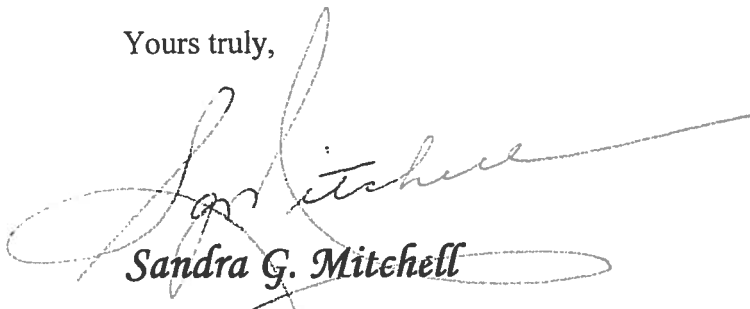 Yours truly,
SGMitchell
Sandra G. Mitchell